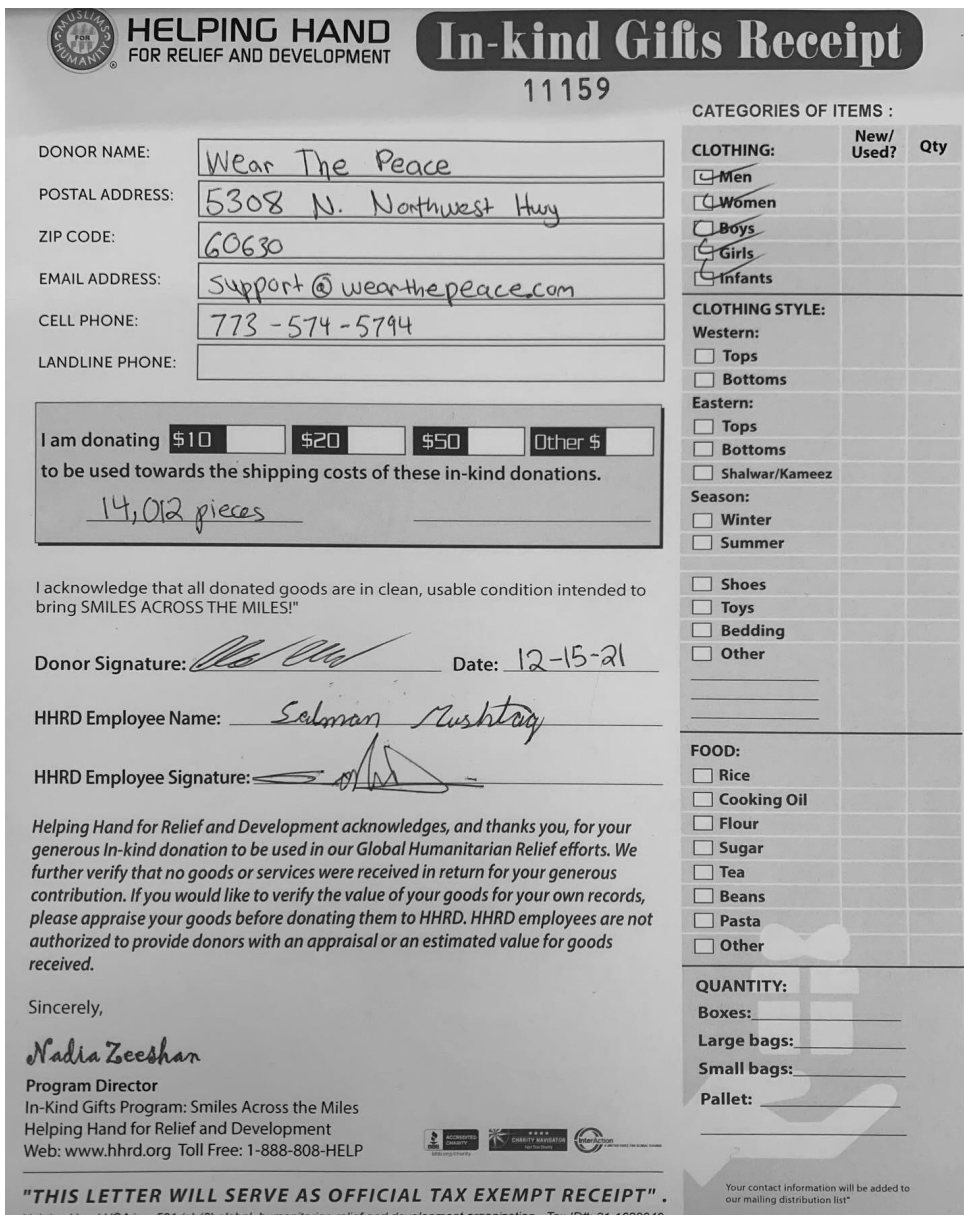 MUSLIMS FOR HUMANITY
HELPING HAND
FOR RELIEF AND DEVELOPMENT
In-kind Gifts Receipt
11159
DONOR NAME: Wear The Peace
POSTAL ADDRESS: 5308 N. Northwest Hwy
ZIP CODE: 60630
EMAIL ADDRESS: support@wearthepeace.com
CELL PHONE: 773-574-5794
LANDLINE PHONE:
I am donating $10 $20 $50 Other $
to be used towards the shipping costs of these in-kind donations.
14,012 pieces
I acknowledge that all donated goods are in clean, usable condition intended to
bring SMILES ACROSS THE MILES!"
Donor Signature: Date: 12-15-21
HHRD Employee Name: Salman Mushtaq
HHRD Employee Signature:
Helping Hand for Relief and Development acknowledges, and thanks you, for your
generous In-kind donation to be used in our Global Humanitarian Relief efforts. We
further verify that no goods or services were received in return for your generous
contribution. If you would like to verify the value of your goods for your own records,
please appraise your goods before donating them to HHRD. HHRD employees are not
authorized to provide donors with an appraisal or an estimated value for goods
received.
Sincerely,
Nadia Zeeshan
Program Director
In-Kind Gifts Program: Smiles Across the Miles
Helping Hand for Relief and Development
Web: www.hhrd.org Toll Free: 1-888-808-HELP
ACCREDITED CHARITY
CHARITY NAVIGATOR
InterAction
"THIS LETTER WILL SERVE AS OFFICIAL TAX EXEMPT RECEIPT" .
CATEGORIES OF ITEMS :
CLOTHING: New/ Used? Qty
Men
Women
Boys
Girls
Infants
CLOTHING STYLE:
Western:
Tops
Bottoms
Eastern:
Tops
Bottoms
Shalwar/Kameez
Season:
Winter
Summer
Shoes
Toys
Bedding
Other
FOOD:
Rice
Cooking Oil
Flour
Sugar
Tea
Beans
Pasta
Other
QUANTITY:
Boxes:
Large bags:
Small bags:
Pallet:
Your contact information will be added to
our mailing distribution list"